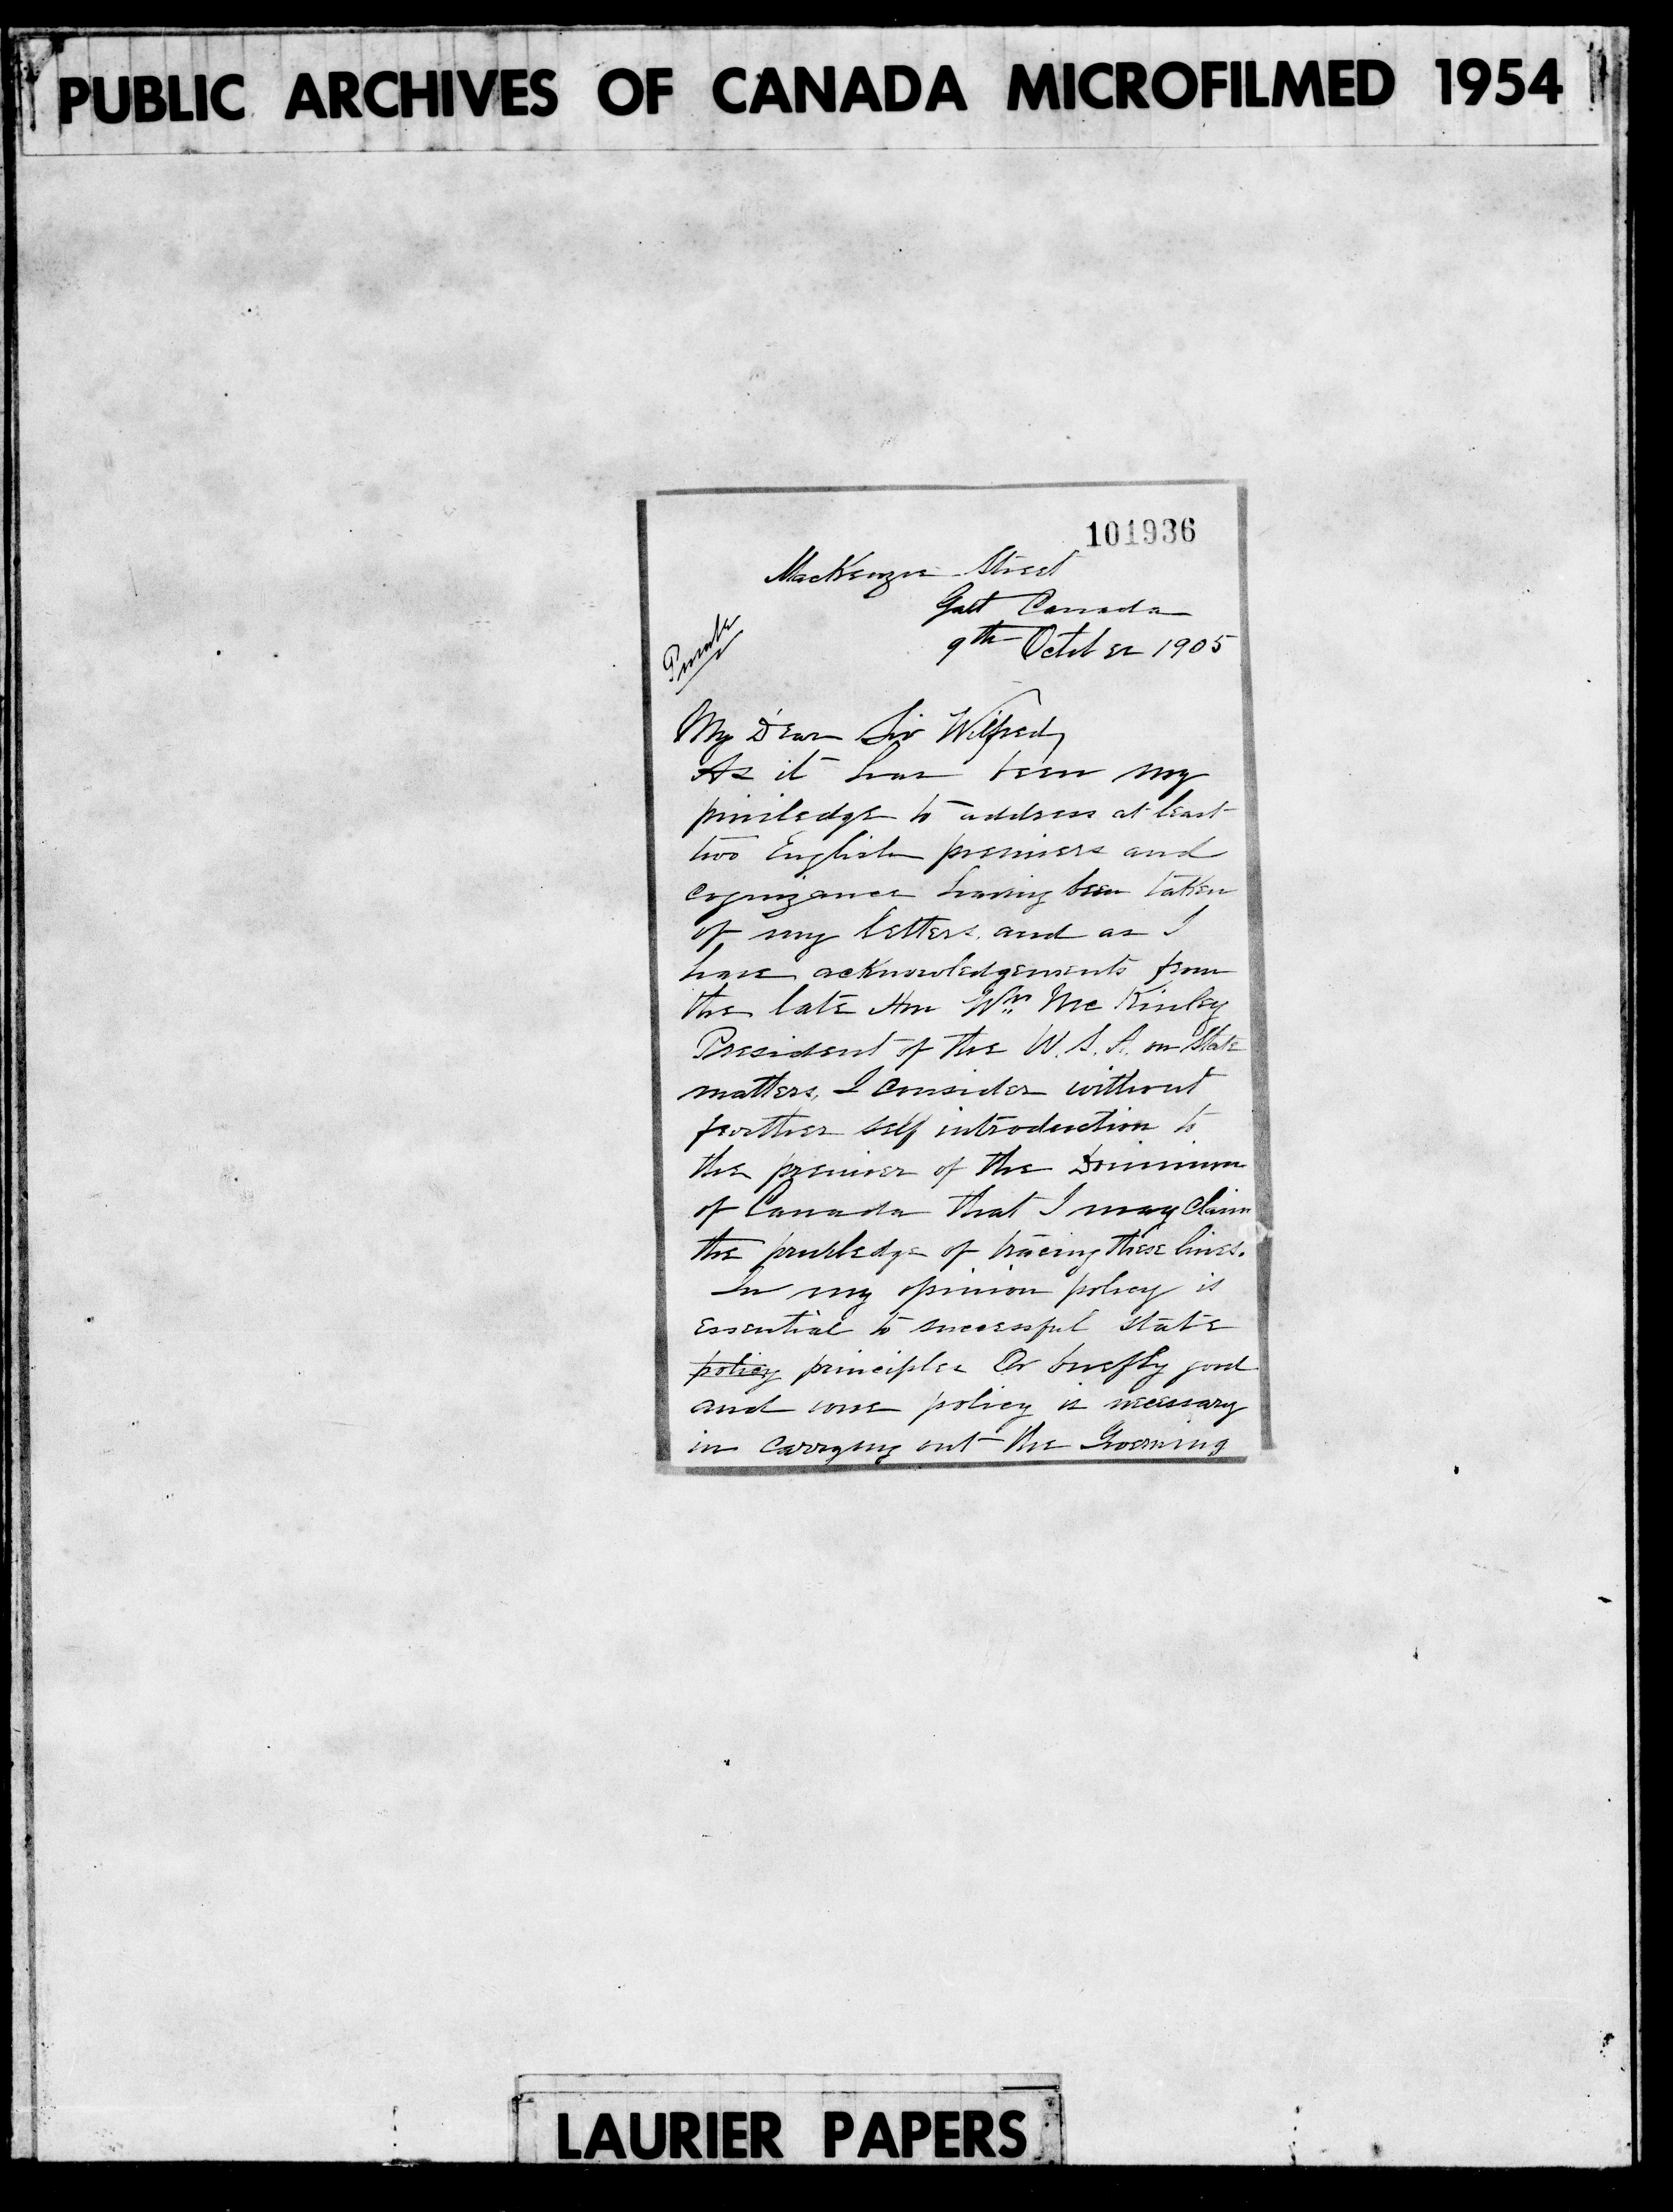 PUBLIC ARCHIVES OF CANADA MICROFILMED 1954
101936
MacKenzie Street
Galt Canada
Private
9th October 1905
My Dear Sir Wilfred,
As it has been my
priviledge to address at least
two English premiers and
cognizance having been taken
of my letters. and as I
have acknowledgements from
the late Hon Wm Mc Kinley
President of the U.S.A. on State
matters, I consider without
further self introduction to
the premier of the Dominion
of Canada that I may claim
the priviledge of tracing these lines.
In my opinion policy is
essential to successful state
policy principles Or briefly good
and wise policy is necessary
in carrying out the Governing
LAURIER PAPERS